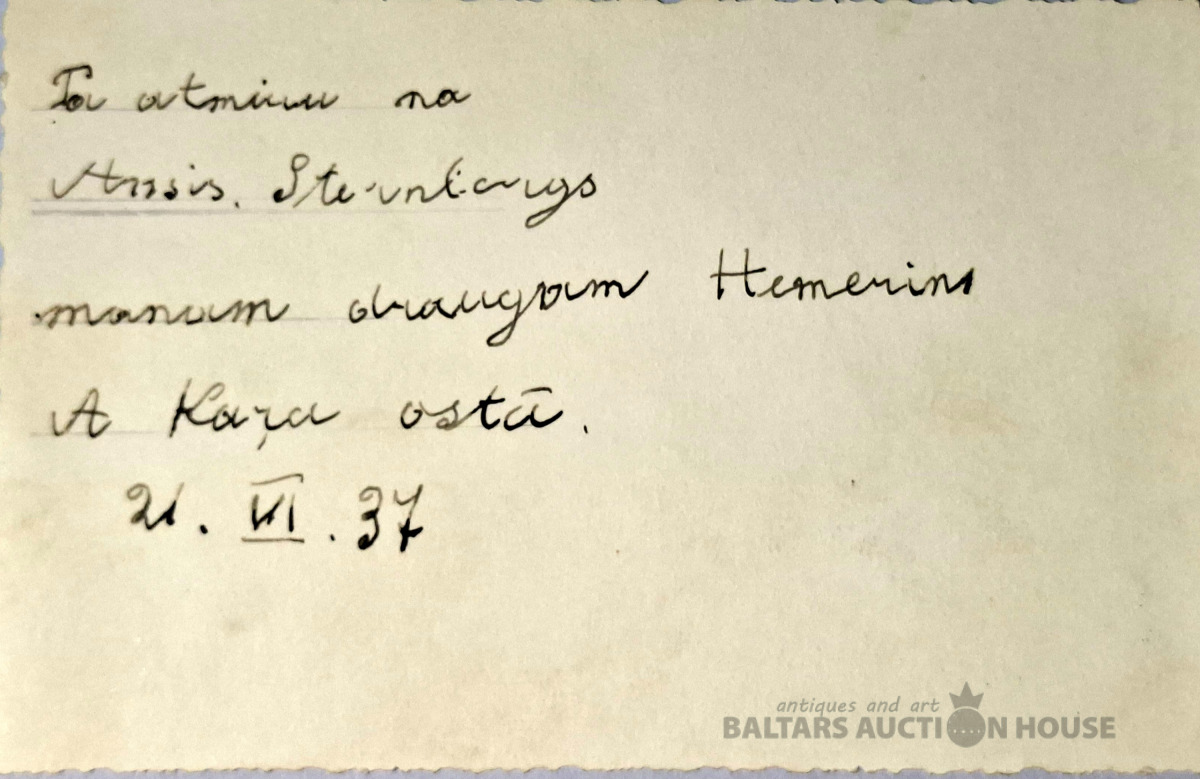 Ta atmiņu na
Ansis. Sternbergs
manam draugam Hemerim
A Kaŗa ostā.
21. VI. 37
antiques and art
BALTARS AUCTION HOUSE